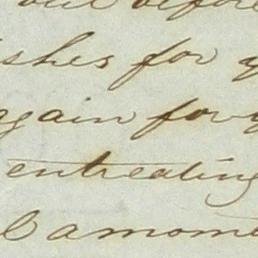 out before
ishes for y
again for y
entreating
l a mome